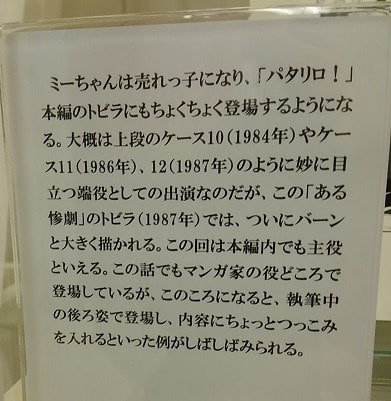 ミーちゃんは売れっ子になり、「パタリロ！」
本編のトビラにもちょくちょく登場するようにな
る。大概は上段のケース10（1984年）やケー
ス11（1986年）、12（1987年）のように妙に目
立つ端役としての出演なのだが、この「ある
惨劇」のトビラ（1987年）では、ついにバーン
と大きく描かれる。この回は本編内でも主役
といえる。この話でもマンガ家の役どころで
登場しているが、このころになると、執筆中
の後ろ姿で登場し、内容にちょっとつっこみ
を入れるといった例がしばしばみられる。